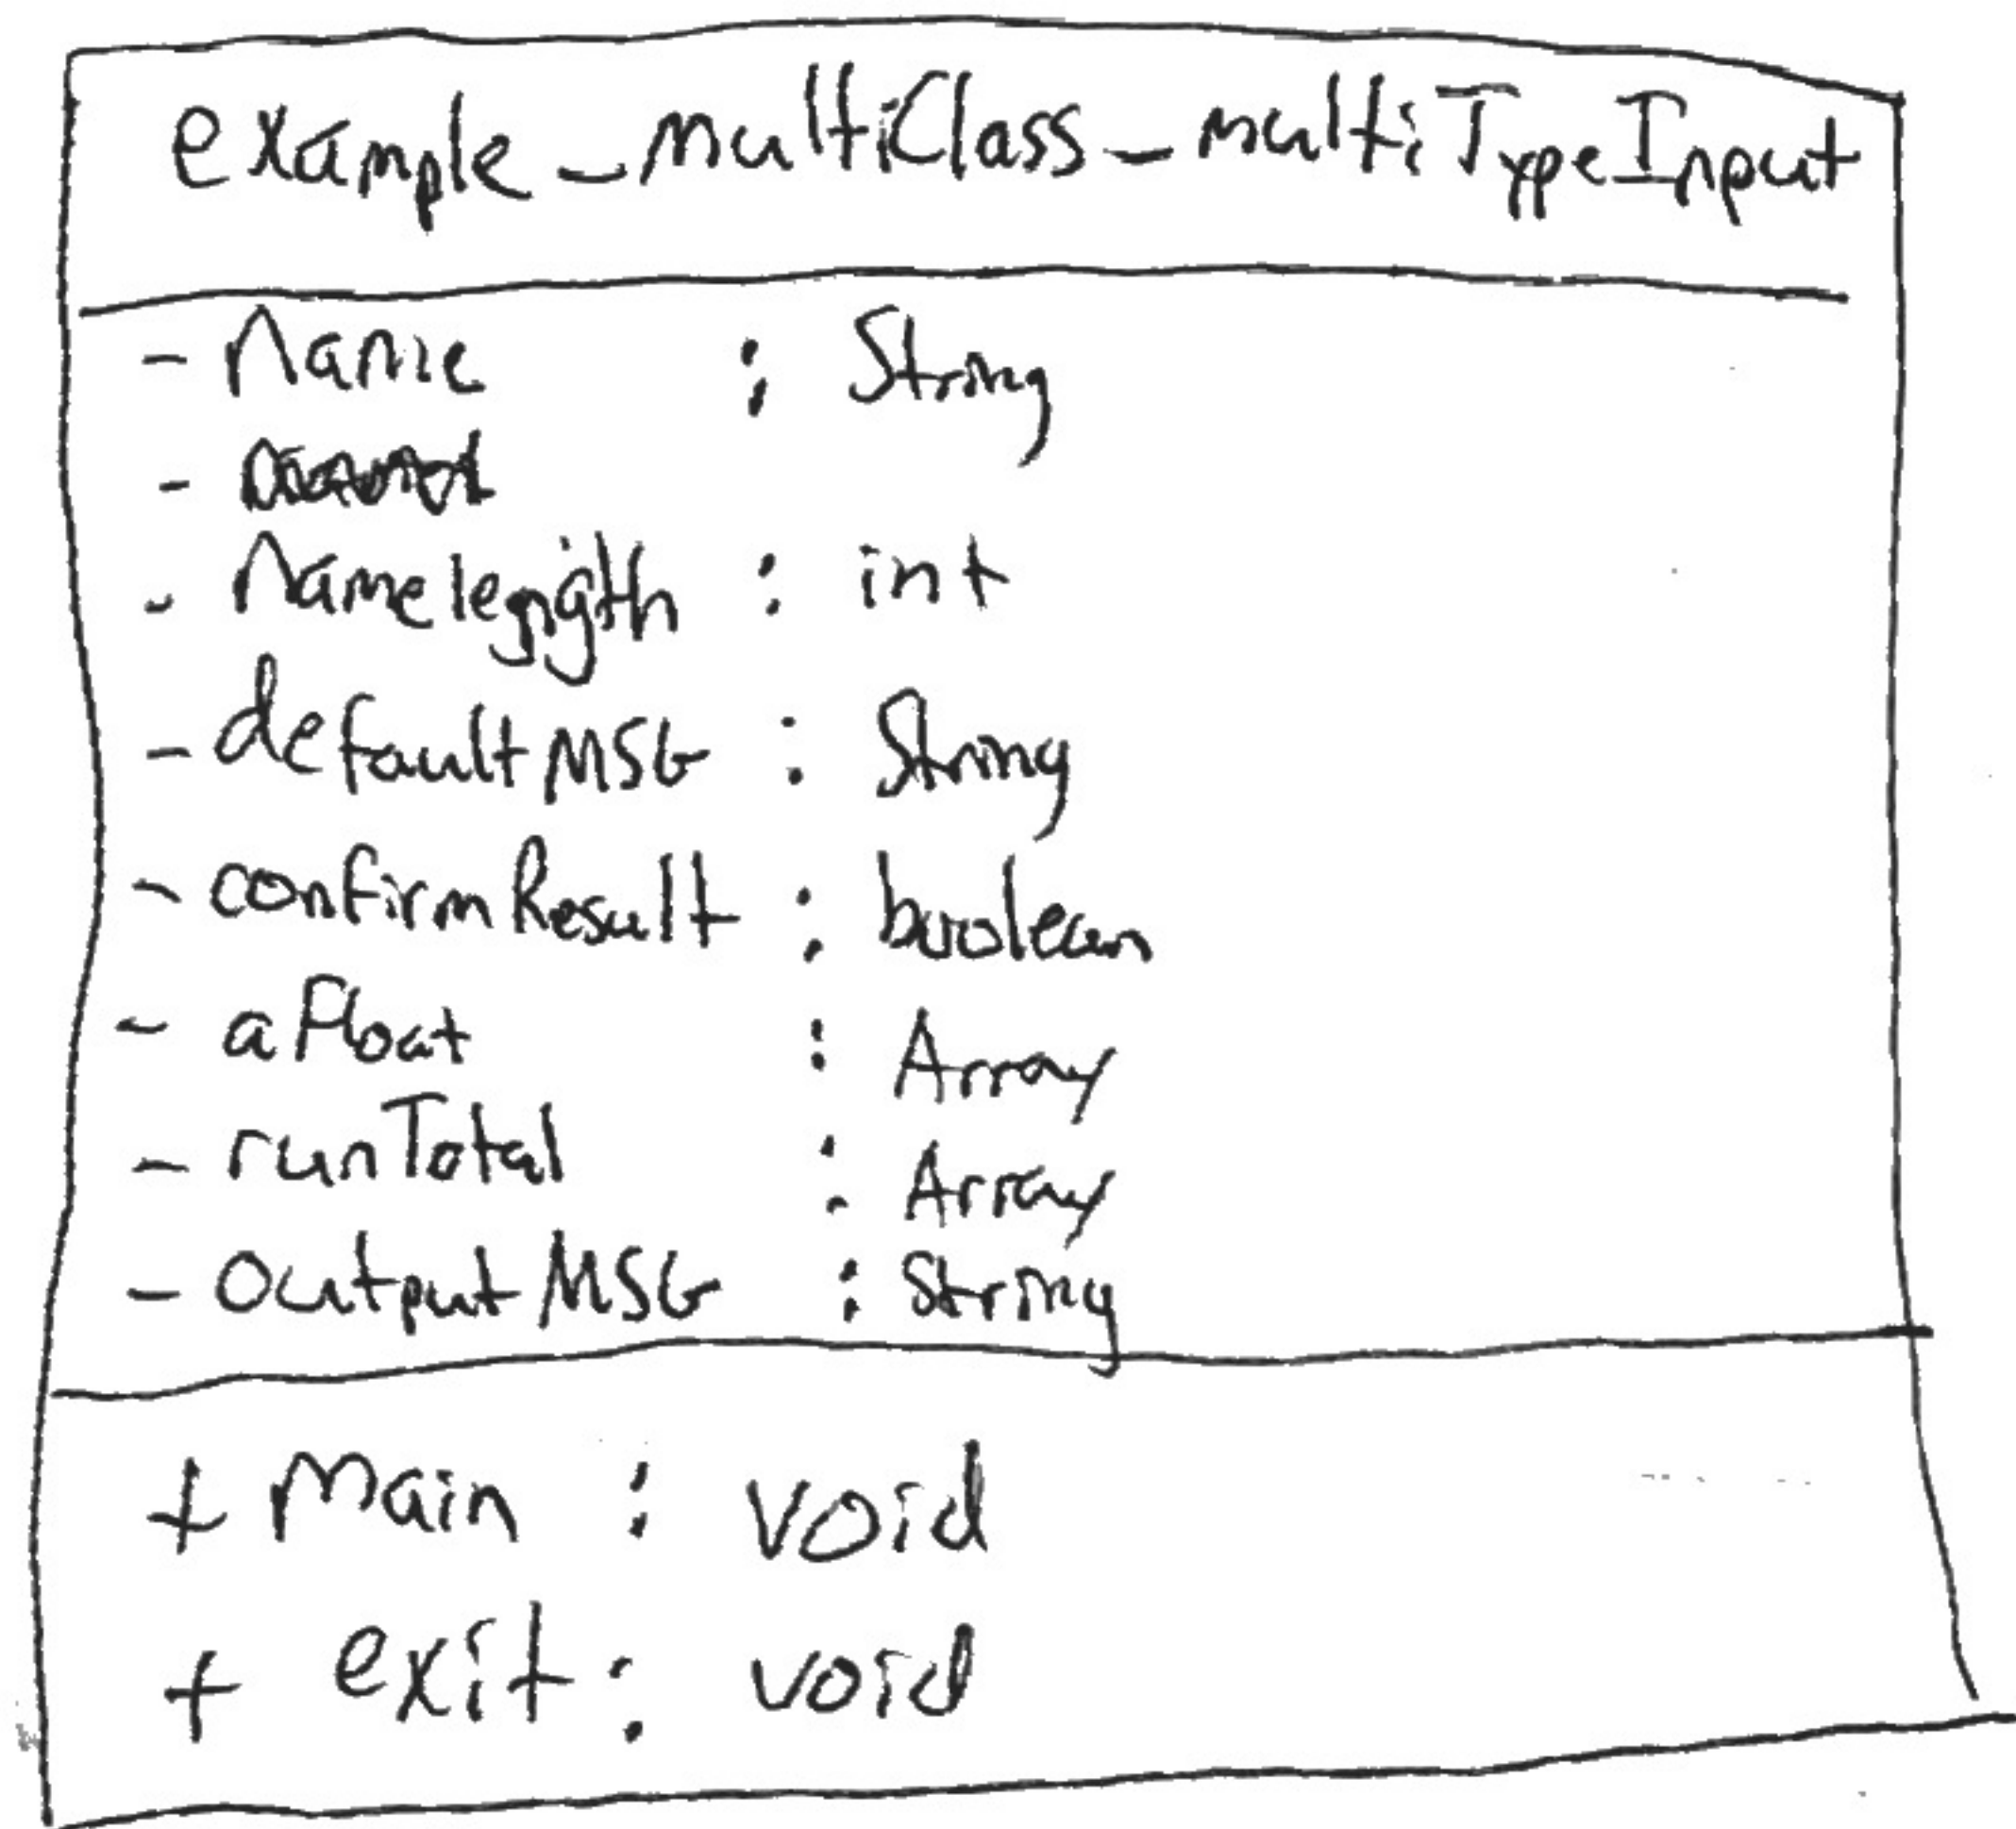 example_multiClass_multiTypeInput
- Name : String
-
- Namelegngth : int
- defaultMSG : String
- confirmResult : boolean
- aFloat : Array
- runTotal : Array
- OutputMSG : String
+ Main : void
+ exit : void